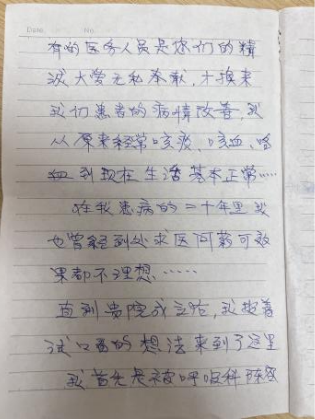 Date No.
有的医务人员是你们的精
诚大爱无私奉献,才换来
我们患者的病情改善,我
从原来经常咳痰、咳血、喀
血到现在生活基本正常……
在我患病的二十年里我
也曾经到处求医问药可效
果都不理想……
直到贵院成立治,我抱着
试试看的想法来到了这里
我首先是被呼吸科陈